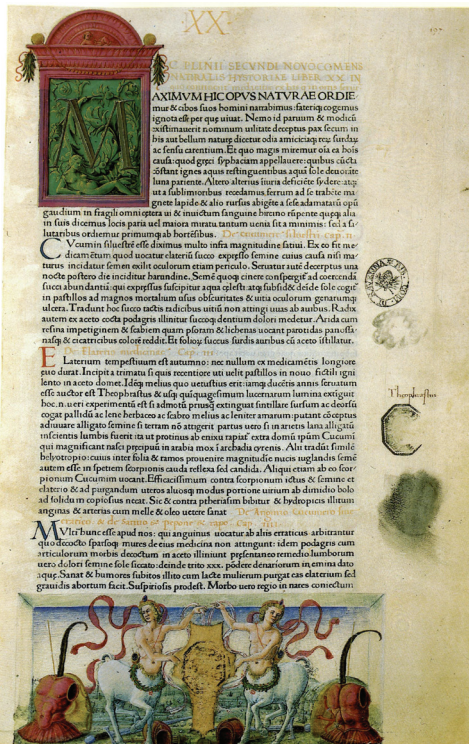 XX
C. PLINII SECVNDI NOVOCOMENS
NATVRALIS HISTORIAE LIBER XX IN
MAXIMVM HIC OPVS NATVRAE ORDIE
mur & cibos suos homini narrabimus: fateriq; cogemus
ignota esse per quę uiuat. Nemo id paruum & modicū
existimauerit nominum uilitate deceptus. pax secum in
his aut bellum naturę dicetur odia amiciciaq; rerū surdarų
ac sensu carentium. Et quo magis miremur oīa ea hoīs
causa: quod gręci sympathiam appellauere: quibus cūcta
cōstant ignes aquis restinguentibus aquā sole deuorāte
luna pariente. Altero alterius iniuria deficiēte sydere: atq;
ut a sublimioribus recedamus. ferrum ad se trahēte ma
gnete lapide & alio rursus abigēte a sese adamātā opū
gaudium in fragili omniq; cętera ui & inuictum sanguine hircino rūpente quęq; alia
in suis dicemus locis paria uel maiora miratu. tantum uenia sit a minimis: sed a sa
lutaribus ordiemur primumq; ab hortēsibus. De cucumere siluestri Cap. i.
CVcumin siluestrē esse diximus multo infra magnitudinē satiui. Ex eo fit me
dicamētum quod uocatur elateriū succo expresso semine cuius causa nisi ma
turius incidatur semen exilit oculorum etiam periculo. Seruatur autē deceptus una
nocte postero die inciditur harundine. Semē quoq; cinere conspergūt ad coercendā
succi abundantiā: qui expressus suscipitur aqua cęlesti: atq; subsidit: deide sole cogit̄
in pastillos ad magnos mortalium usus obscuritates & uitia oculorum genarumq;
ulcera. Tradunt hoc succo tactis radicibus uitiū non attingi uuas ab auibus. Radix
autem ex aceto cocta podagris illinitur succoq; dentium dolori medetur. Arida cum
resina impetiginem & scabiem quam psoram & lichenas uocant parotidas panos sa
nasq; & cicatricibus colorē reddit. Et folioų succus surdis auribus cū aceto istillatur.
De Elaterio medicamine Cap. iii
ELaterium tempestiuum est autumno: nec nullum ex medicamētis longiore
ęuo durat. Incipit a trimatu si quis recentiore uti uelit pastillos in nouo fictili igni
lento in aceto domet. Idēq; melius quo uetustius erit: iamq; ducētis annis seruatum
esse auctor est Theophrastus & usq; quīquagesimum lucernarum lumina extiguit
hoc. n. ueri experimentū est si admotū priusq; extinguat sintillare sursum ac deorsū
cogat pallidū ac lene herbaceo ac scabro melius ac leniter amarum: putant cōceptus
adiuuare alligato semine si terram nō attigerit partus uero si in arietis lana alligatū
inscientis lumbis fuerit ita ut protinus ab enixu rapiat̄ extra domū ipsum Cucumī
qui magnificant nasci pręcipuū in arabia mox ī archadia cyrenis. Alii tradūt similē
helyotropio: cuius inter folia & ramos prouenit magnitudīe nucis iuglandis semē
autem esse in spetiem scorpionis cauda reflexa sed candida. Aliqui etiam ab eo scor
pionium Cucumim uocant. Efficacissimum contra scorpionum ictus & semine et
elaterio & ad purgandum uteros aluosq; modus portione uirium ab dimidio bolo
ad solidū in copiosius necat. Sic & contra ptheriasim bibitur & hydropicis illitum
anginas & arterias cum melle & oleo uetere sanat
MVlti hunc esse apud nos: qui anguinus uocatur ab aliis erraticus arbitrantur
quo decocto sparsoq; mures de eius medicina non attingunt: idem podagris cum
articulorum morbis decoctum in aceto illiniunt pręsentaneo remedio lumborum
uero dolori semine sole siccato: deinde trito xxx. pōdere denariorum in emina dato
aquę. Sanat & humores subitos illito cum lacte mulierum purgat eas elaterium sed
grauidis abortum facit. Suspiriosis prodest. Morbo uero regio in nares coniectum
Theophrastus